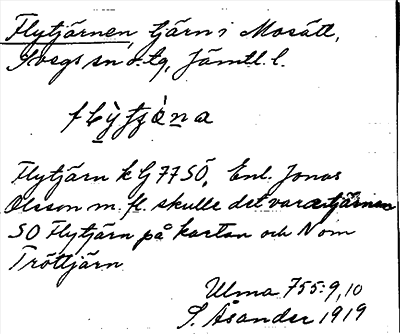 Flytjärnen, tjärn i Mosätt,
sn o. tg, Jämtl. l.
Flytjärn k bj 77 SÖ, Enl. Jonas
Olsson m. fl. skulle det vara tjärnen
SO Flytjärn på kartan och N om
Tröttjärn
Ulma 755:9,10
S. Åsander 1919